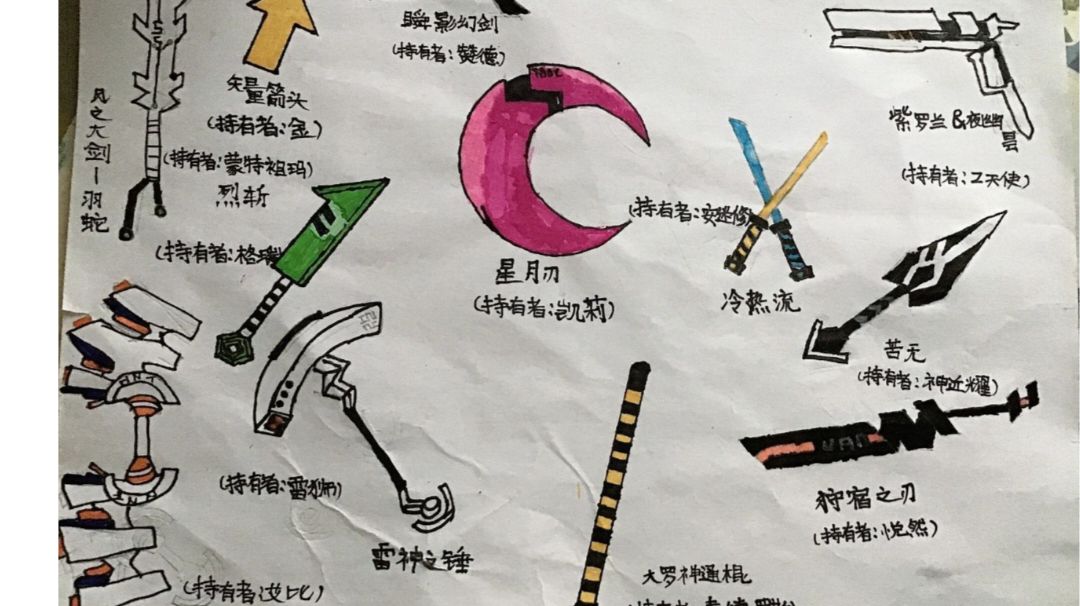 瞬影幻剑
(持有者:赞德)
矢量箭头
(持有者:金)
风之大剑-羽蛇
(持有者:蒙特祖玛)
烈斩
(持有者:格瑞)
星月刃
(持有者:凯莉)
(持有者:安迷修)
冷热流
紫罗兰&夜幽昙
(持有者:Z天使)
苦无
(持有者:神近耀)
VAN
狩宿之刃
(持有者:悦然)
(持有者:雷狮)
雷神之锤
(持有者:艾比)
大罗神通棍